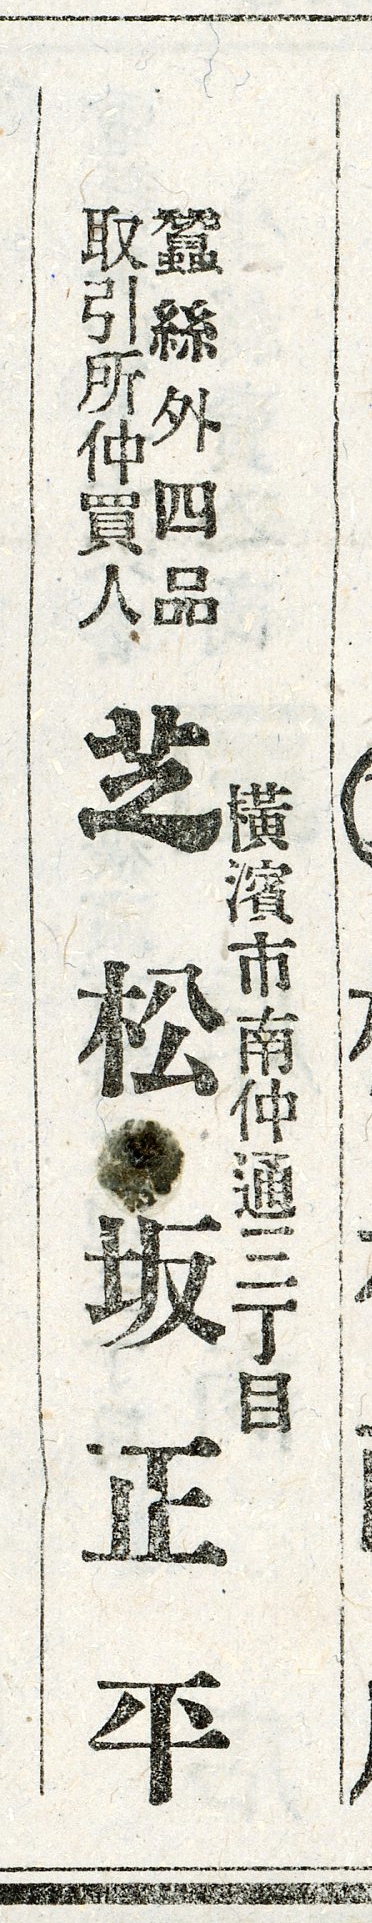 橫濱市南仲通三丁目
蠶絲外四品
取引所仲買人
芝松坂正平